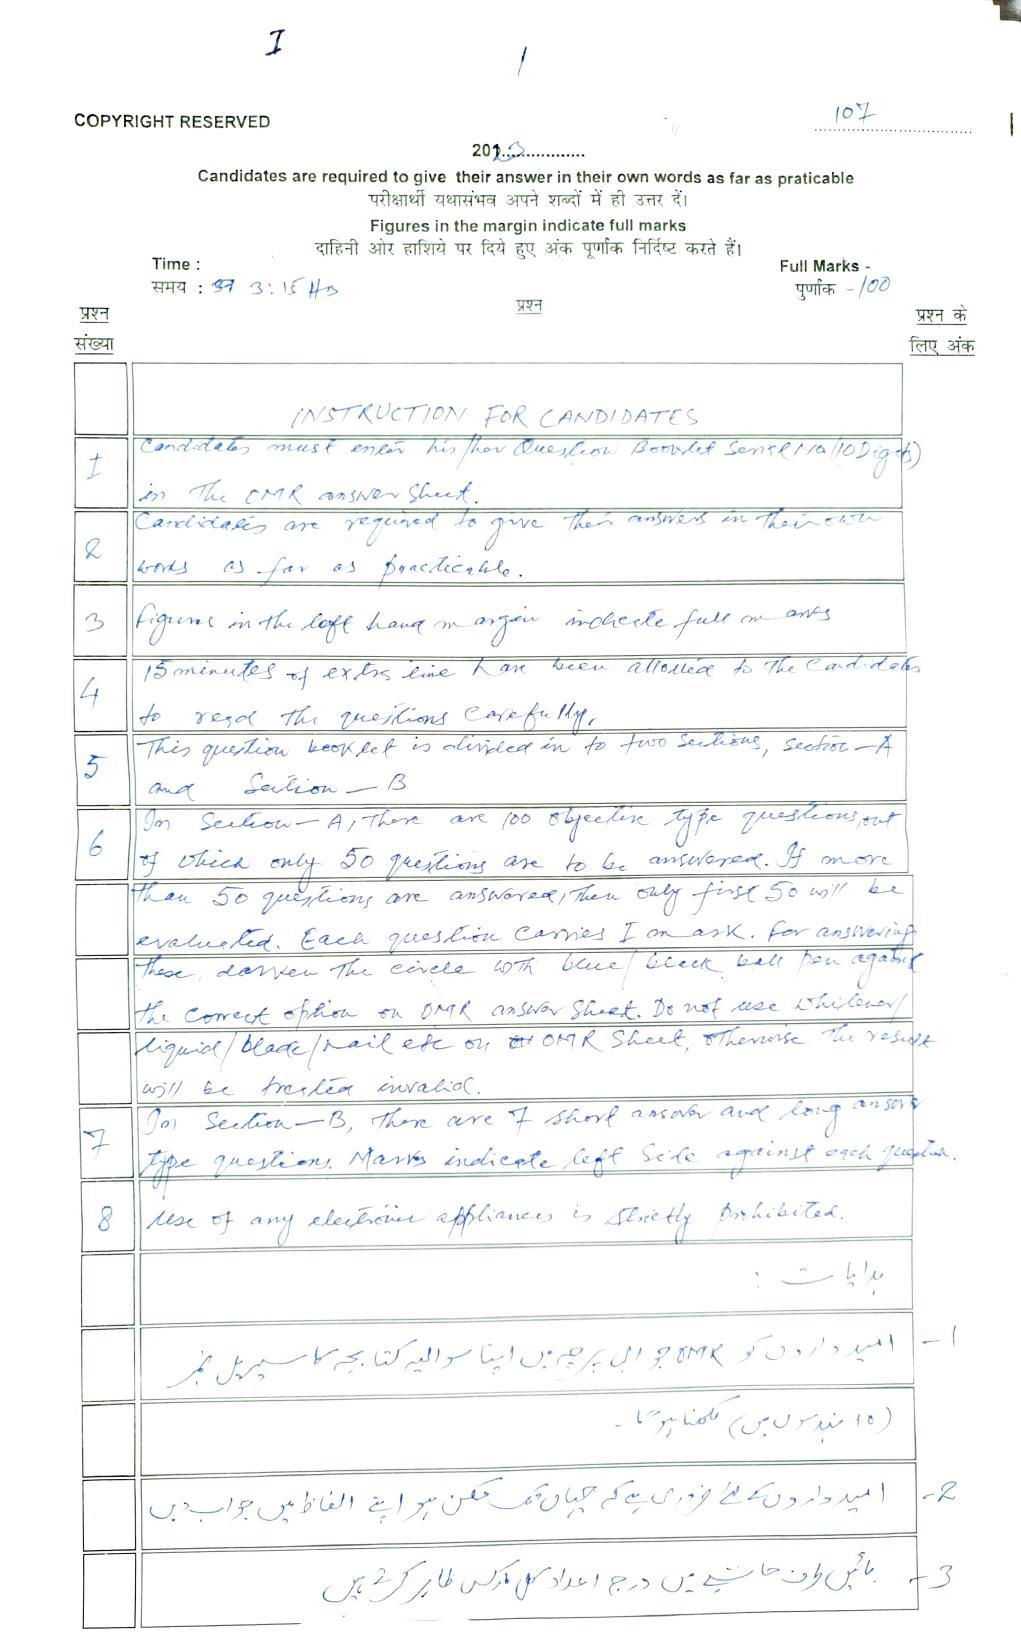 I
1
COPYRIGHT RESERVED
107
2023
Candidates are required to give their answer in their own words as far as praticable
परीक्षार्थी यथासंभव अपने शब्दों में ही उत्तर दें।
Figures in the margin indicate full marks
दाहिनी ओर हाशिये पर दिये हुए अंक पूर्णांक निर्दिष्ट करते हैं।
Time :
Full Marks -
समय : 3:15 Hrs
पुर्णांक -100
प्रश्न
प्रश्न
प्रश्न के
संख्या
लिए अंक
INSTRUCTION FOR CANDIDATES
1 Candidates must enter his/her Question Booklet Serial No (10 Digits)
in the OMR answer sheet.
2 Candidates are required to give their answers in their own
words as far as practicable.
3 Figures in the left hand margin indicate full marks
4 15 minutes of extra time have been allotted to the candidates
to read the questions carefully.
5 This question booklet is divided in to two sections, section-A
and Section-B
6 In Section-A, There are 100 objective type questions, out
of which only 50 questions are to be answered. If more
than 50 questions are answered, then only first 50 will be
evaluated. Each question carries 1 mark. For answering
these, darken the circle with blue/black ball pen against
the correct option on OMR answer sheet. Do not use whitener/
liquid/blade/nail etc on OMR Sheet, otherwise the result
will be treated invalid.
7 In Section-B, there are 7 short answer and long answer
type questions. Marks indicate left side against each question.
8 Use of any electronic appliances is strictly prohibited.
ہدایات :
1- امیدواروں کو OMR جوابی پرچہ میں اپنا سوالیہ کتابچہ کا سیریل نمبر
(10 ہندسوں میں) لکھنا ہوگا۔
2- امیدواروں کے لئے ضروری ہے کہ جہاں تک ممکن ہو اپنے الفاظ میں جواب دیں
3- بائیں طرف حاشیے میں درج اعداد کل مارکس ظاہر کرتے ہیں